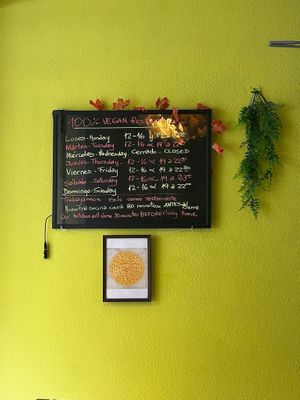 100% VEGAN Rest
Lunes-Monday 12-16
Martes-Tuesday 12-16 19 a 22
Miércoles-Wednesday Cerrado-CLOSED
Jueves-Thursday 12-16 19 a 22
Viernes-Friday 12-16 19 a 22
Sábado-Saturday 12-16 19 a 22
Domingo-Sunday 12-16 19 a 22
Trabajamos solo como restaurante
Nuestra cocina cierra 30 minutos ANTES
Our kitchen closes 30 minutes BEFORE closing